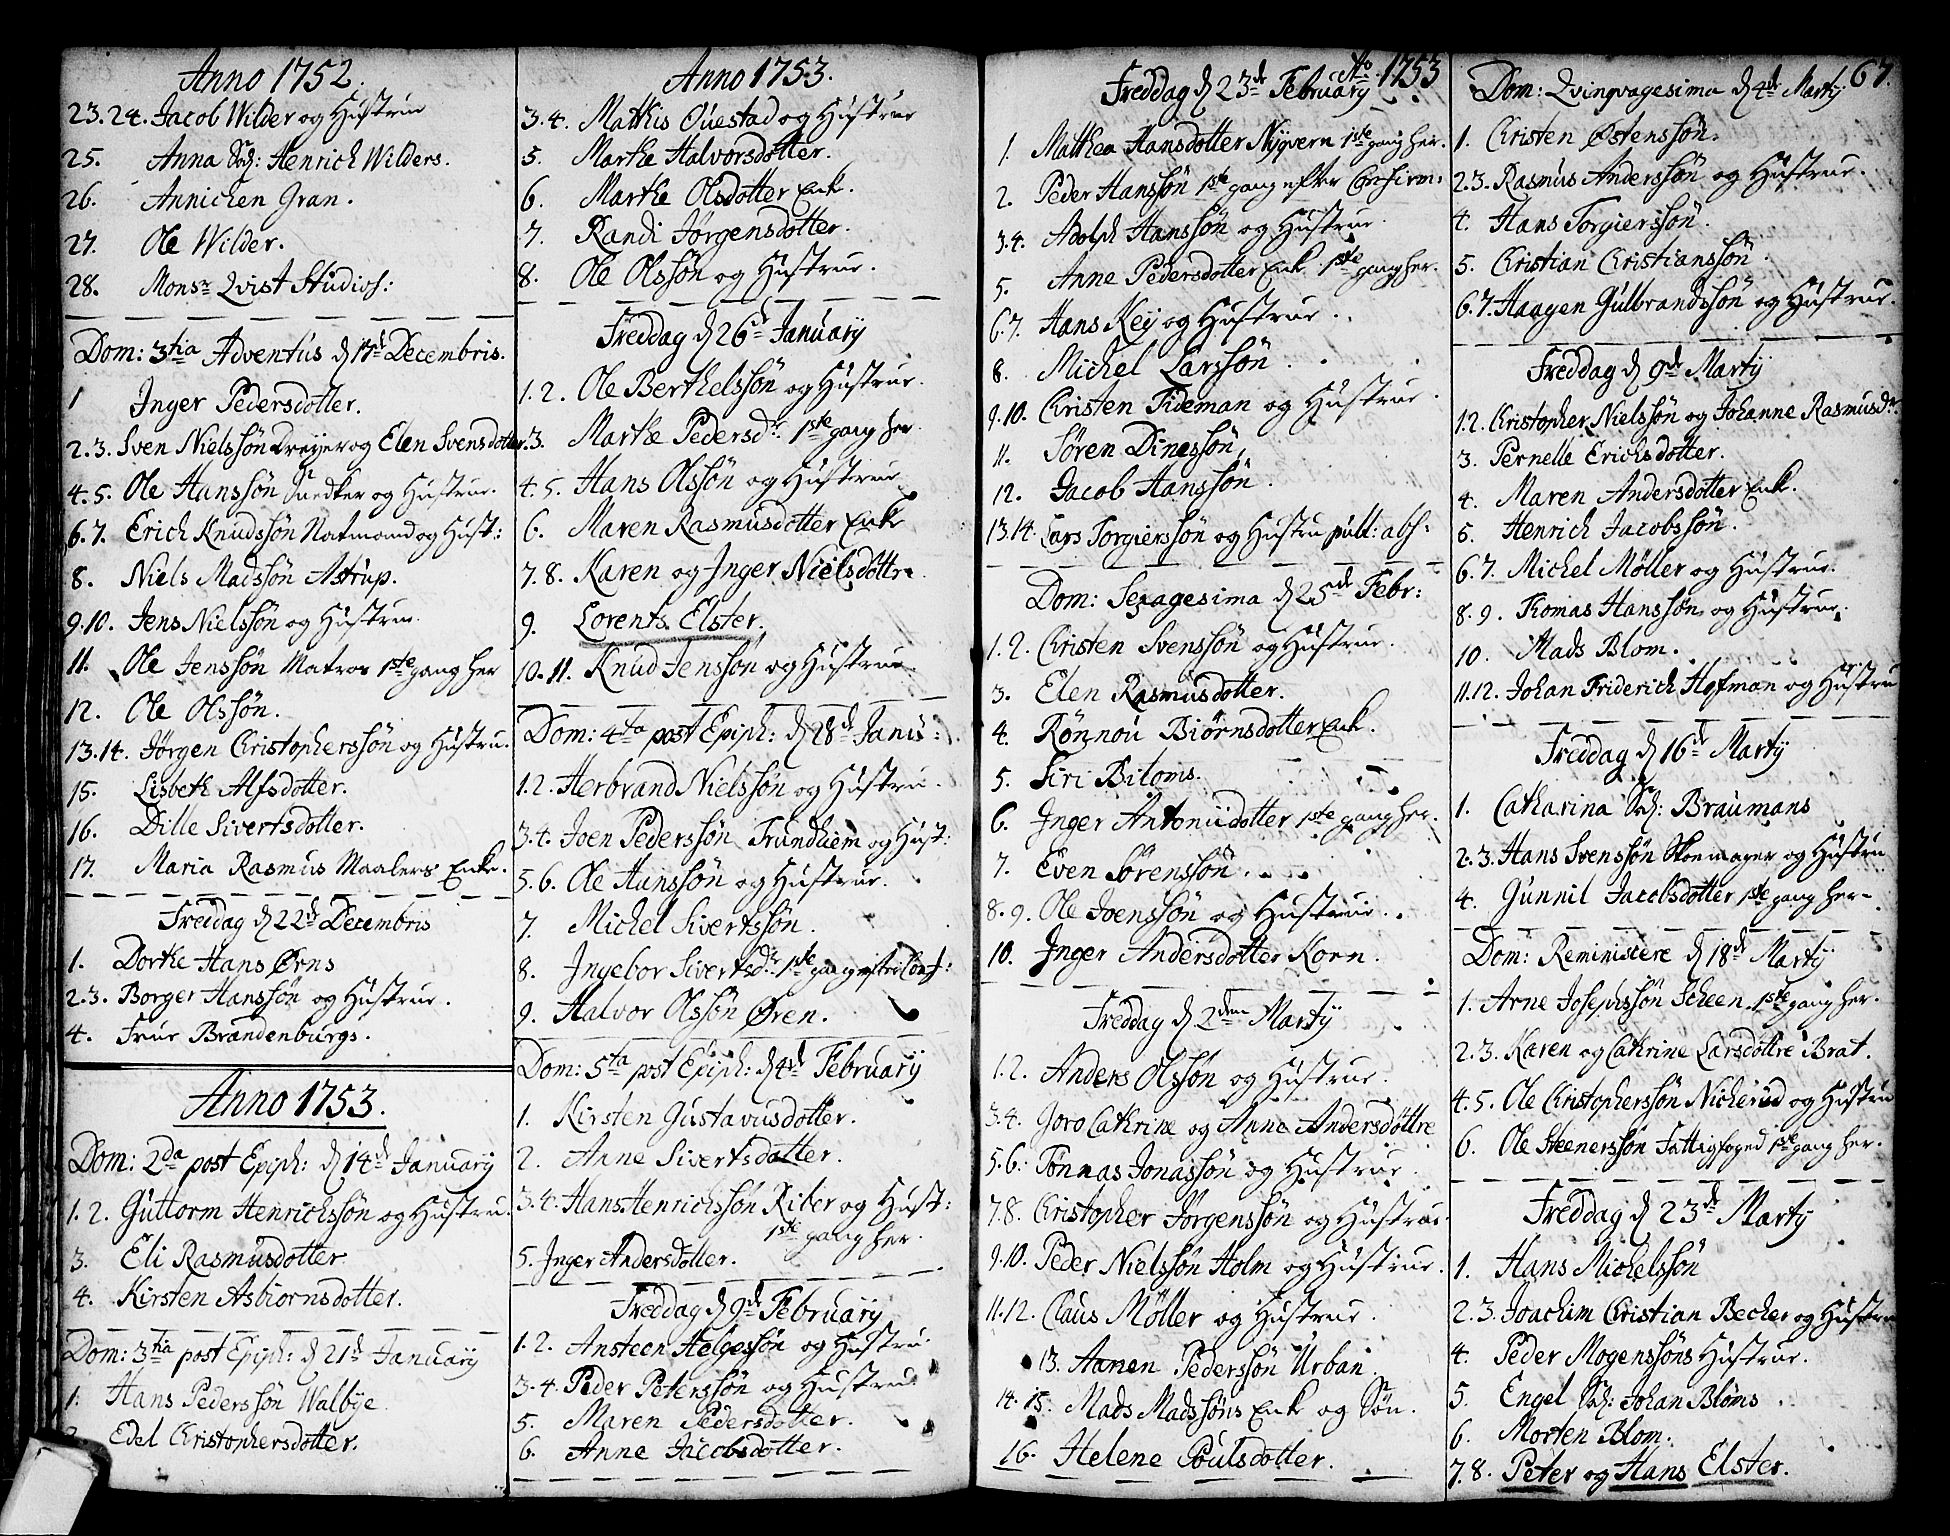 Anno 1752.
23.24. Jacob Wilder og Hustrue
25. Anna Sal: Henrich Wilders.
26. Annichen Gran.
27. Ole Wilder.
28. Monsr Qvist Studios:
Dom: 3tia Adventus d 17d Decembris.
1 Inger Pedersdotter.
2.3. Sven Nielssøn Dreyer og Elen Svensdotter.
4.5. Ole Hanssøn Snedker og Hustrue.
6.7. Erich Knudssøn Natmand og Hust:
8. Niels Madssøn Astrup.
9.10. Jens Nielssøn og Hustrue
11. Ole Jenssøn Matros 1ste gang her
12. Ole Olssøn.
13.14. Jørgen Christopherssøn og Hustru.
15. Lisbeth Alfsdotter.
16. Dille Sivertsdotter.
17. Maria Rasmus Maalers Enke.
Freddag d 22d Decembris
1. Dorthe Hans Ørns
2.3. Borger Hanssøn og Hustrue.
4. Frue Brandenburgs.
Anno 1753.
Dom: 2da post Epiph: d 14d January
1.2. Guttorm Henrichssøn og Hustru.
3. Eli Rasmusdotter
4. Kirsten Asbiornsdotter.
Dom: 3tia post Epiph: d 21d January
1. Hans Pederssøn Walbye.
2. Edel Christophersdotter.
Anno 1753.
3.4. Mathis Questad og Hustrue
5. Marthe Halvorsdotter.
6. Marthe Olsdotter Enk.
7. Randi Jørgensdotter.
8. Ole Olssøn og Hustrue.
Freddag d 26d January
1.2. Ole Berthelssøn og Hustrue.
3. Marthe Pedersdr. 1ste gang her
4.5. Hans Olssøn og Hustrue
6. Maren Rasmusdotter Enke
7.8. Karen og Inger Nielsdøttre
9. Lorents Elster.
10.11. Knud Jenssøn og Hustrue
Dom: 4ta post Epiph: d 28d Janu:
1.2. Herbrand Nielssøn og Hustru.
3.4. Joen Pederssøn Trundhiem og Hust:
5.6. Ole Hanssøn og Hustrue.
7. Michel Sivertssøn.
8. Ingebor Sivertsdr. 1ste gang efter Conf:
9. Halvor Olssøn Øren.
Dom: 5ta post Epiph: d 4d February
1. Kirsten Gustavusdotter.
2. Anne Sivertsdatter.
3.4. Hans Henrichssøn Riber og Hust:
1ste gang her.
5. Inger Andersdotter.
Freddag d 9d February
1.2. Ansteen Helgessøn og Hustru
3.4. Peder Peterssøn og Hustrue
5. Maren Pedersdotter.
6. Anne Jacobsdotter.
Ao. 1753
Freddag d 23d February
1. Matthea Hansdotter Nygvern 1ste gang her.
2. Peder Hanssøn 1ste gang efter Confirm:
3.4. Adolph Hanssøn og Hustrue
5. Anne Pedersdotter Enk 1ste gang her.
6.7. Hans Key og Hustrue.
8. Michel Larssøn.
9.10. Christen Tideman og Hustrue.
11. Søren Dinessøn.
12. Jacob Hanssøn.
13.14. Lars Torgierssøn og Hustru publ: abs:
Dom: Sexagesima d 25de Febr:
1.2. Christen Svenssøn og Hustrue.
3. Elen Rasmusdotter.
4. Rønnou Biørnsdotter Enk.
5. Siri Biloms.
6. Inger Antoniidotter 1ste gang her.
7. Even Sørenssøn.
8.9. Ole Joenssøn og Hustrue.
10. Inger Andersdotter Korn.
Freddag d 2den Marty
1.2. Anders Olssøn og Hustrue.
3.4. Goro Cathrine og Anne Andersdøttre
5.6. Tønnas Jonassøn og Hustrue.
7.8. Christopher Jørgenssøn og Hustrue.
9.10. Peder Nielssøn Holm og Hustrue.
11.12. Claus Møller og Hustrue.
13. Aanen Pederssøn Urban.
14.15. Mads Madssøns Enk og Søn.
16. Helene Poulsdotter.
67.
Dom: Qvinqvagesima d 4de Marty
1. Christen Østenssøn.
2.3. Rasmus Anderssøn og Hustrue.
4. Hans Torgierssøn.
5. Christian Christianssøn.
6.7. Haagen Gulbrandssøn og Hustrue.
Freddag d 9d Marty
1.2. Christopher Nielssøn og Johanne Rasmusdr.
3. Pernelle Erichsdotter.
4. Maren Andersdotter Enk.
5. Henrich Jacobssøn.
6.7. Michel Møller og Hustrue.
8.9. Thomas Hanssøn og Hustrue.
10. Mads Blom.
11.12. Johan Friderich Hofman og Hustru
Freddag d 16d Marty
1. Catharina Sal: Braumans
2.3. Hans Svenssøn Skoemager og Hustru
4. Gunnil Jacobsdotter 1ste gang her.
Dom: Reminiscere d 18de Marty
1. Arne Josephssøn Scheen 1ste gang her.
2.3. Karen og Cathrine Larsdøttre Brat.
4.5. Ole Christopherssøn Nicherud og Hustru
6. Ole Steenerssøn Fattigfoged 1ste gang her.
Freddag d 23d Marty
1. Hans Michelssøn
2.3. Joachim Christian Becher og Hustru
4. Peder Mogenssøns Hustrue.
5. Engel Sal: Johan Bloms.
6. Morten Blom.
7.8. Peter og Hans Elster.